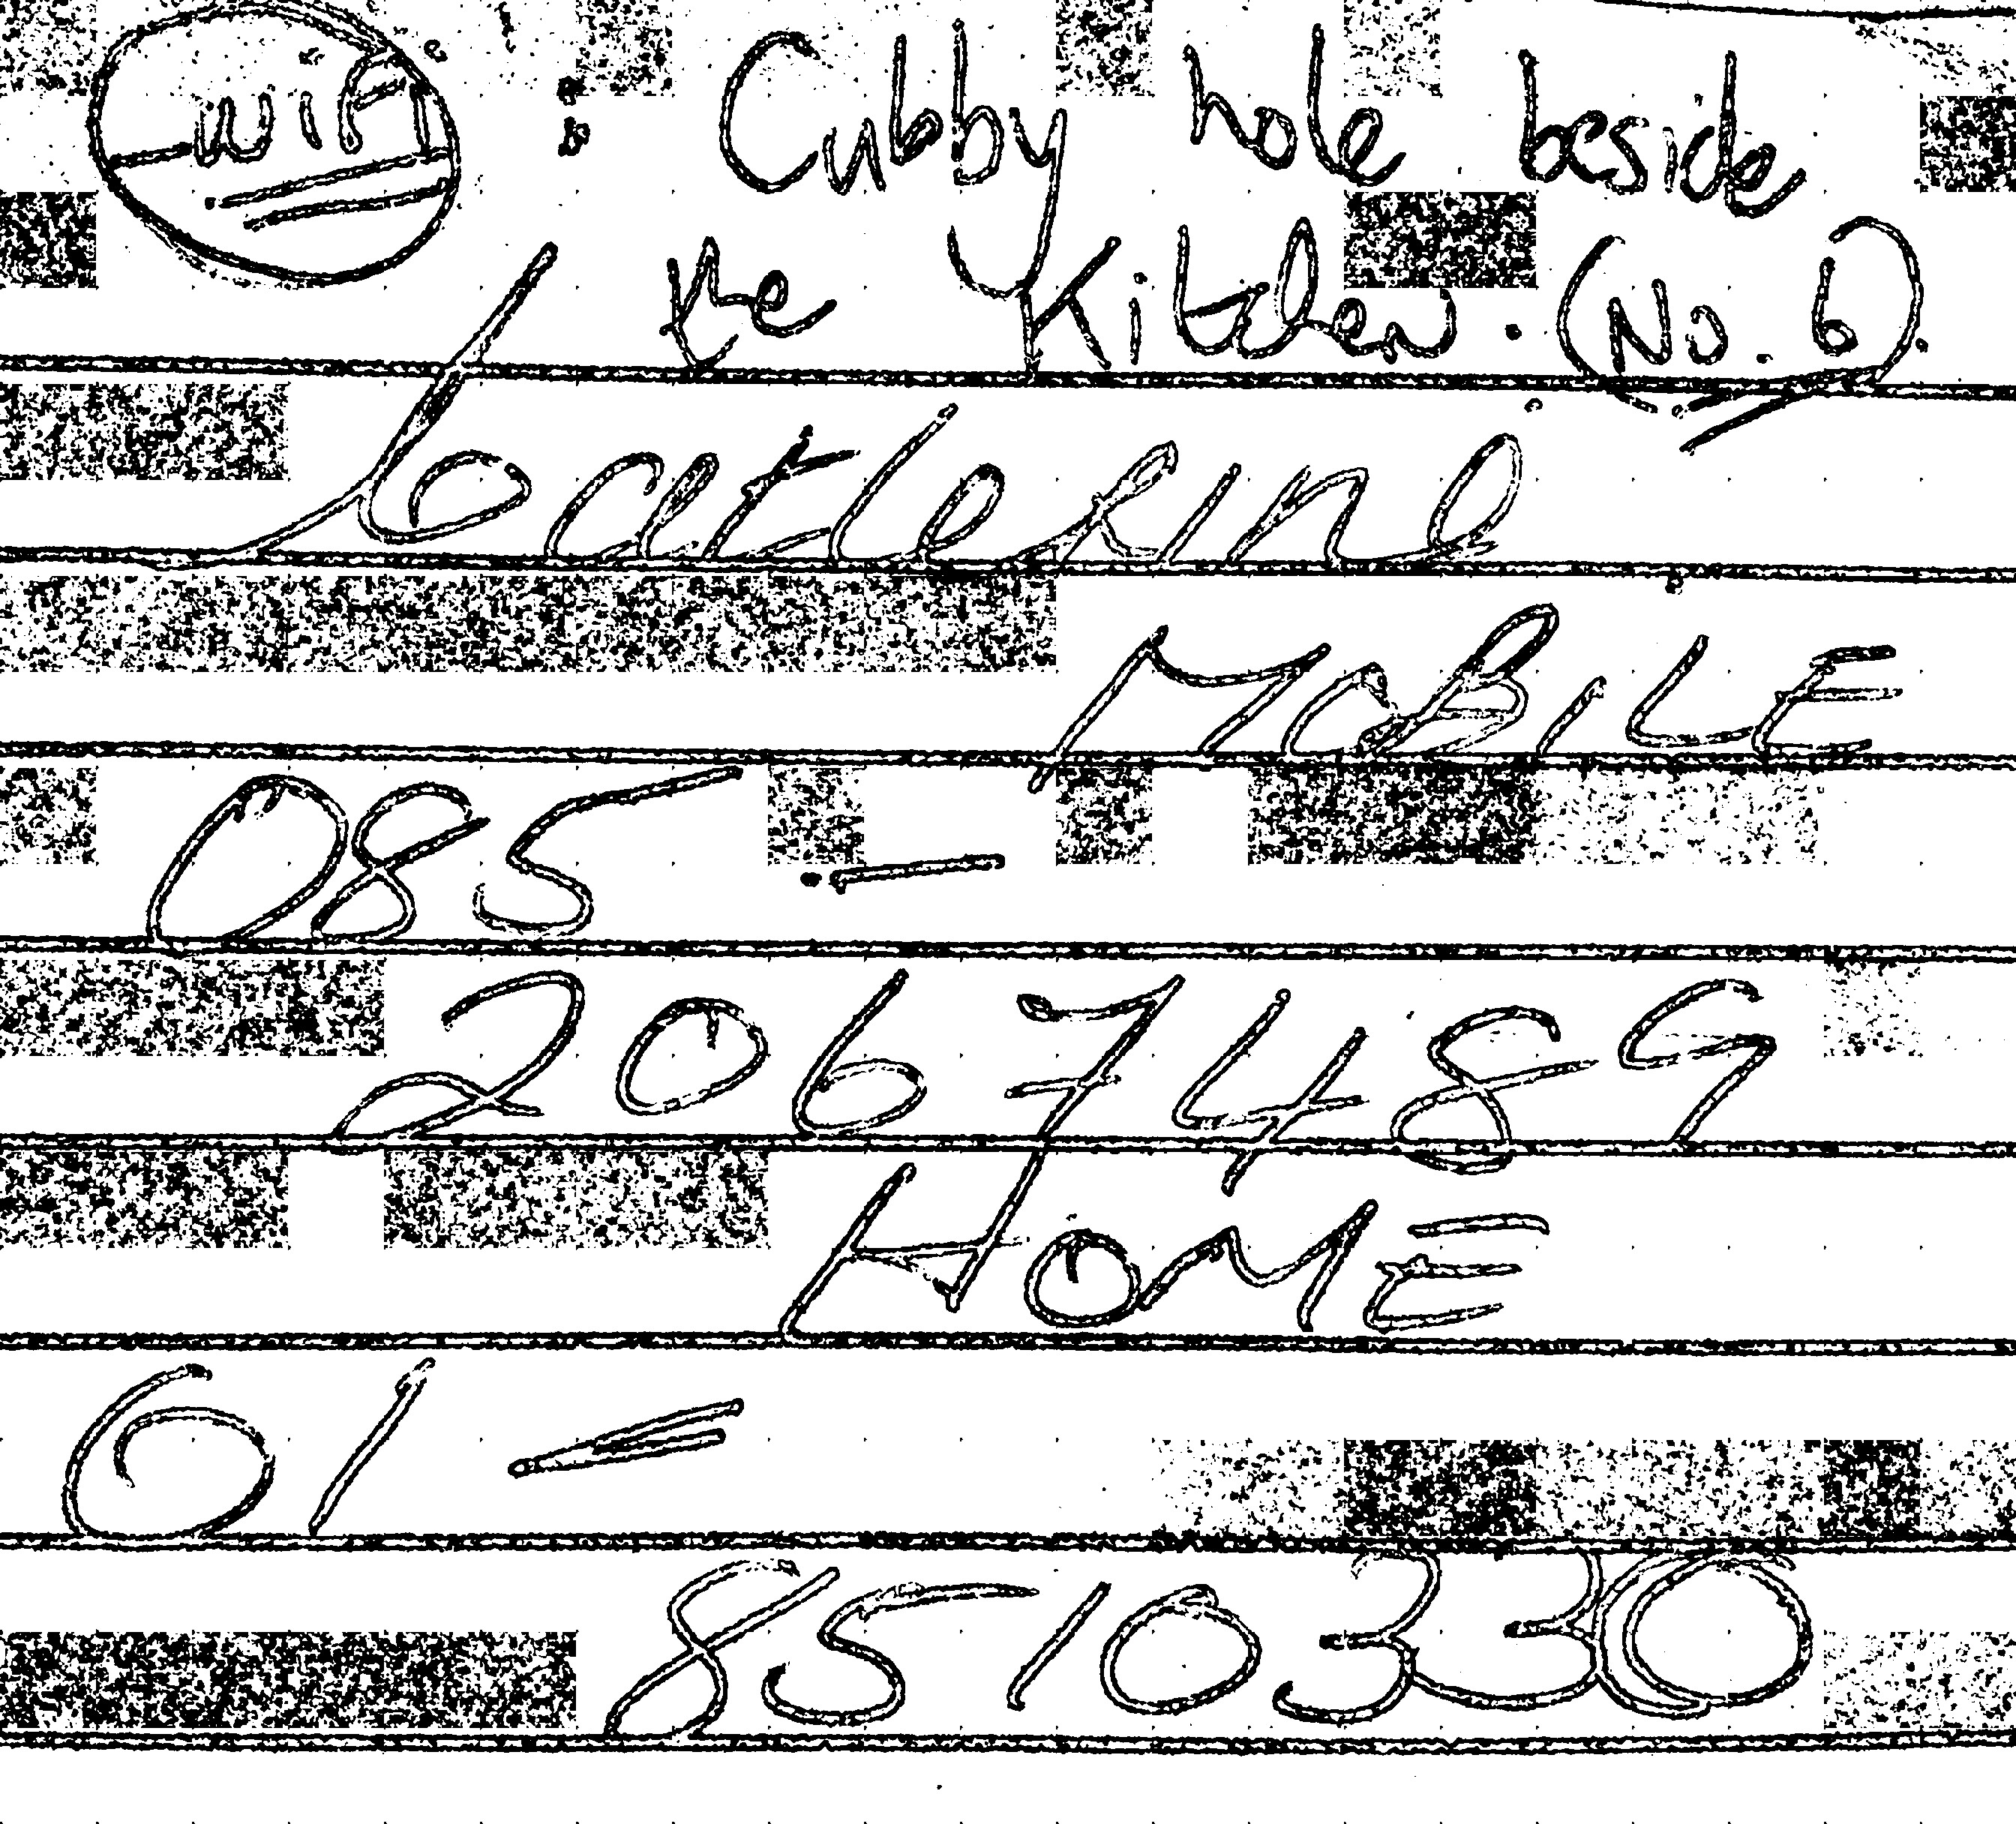 WiFi : Cubby hole beside
the Kitchen. (No. 6).
Catherine
MOBILE
085 -
2067489
HOME
01 -
8510330